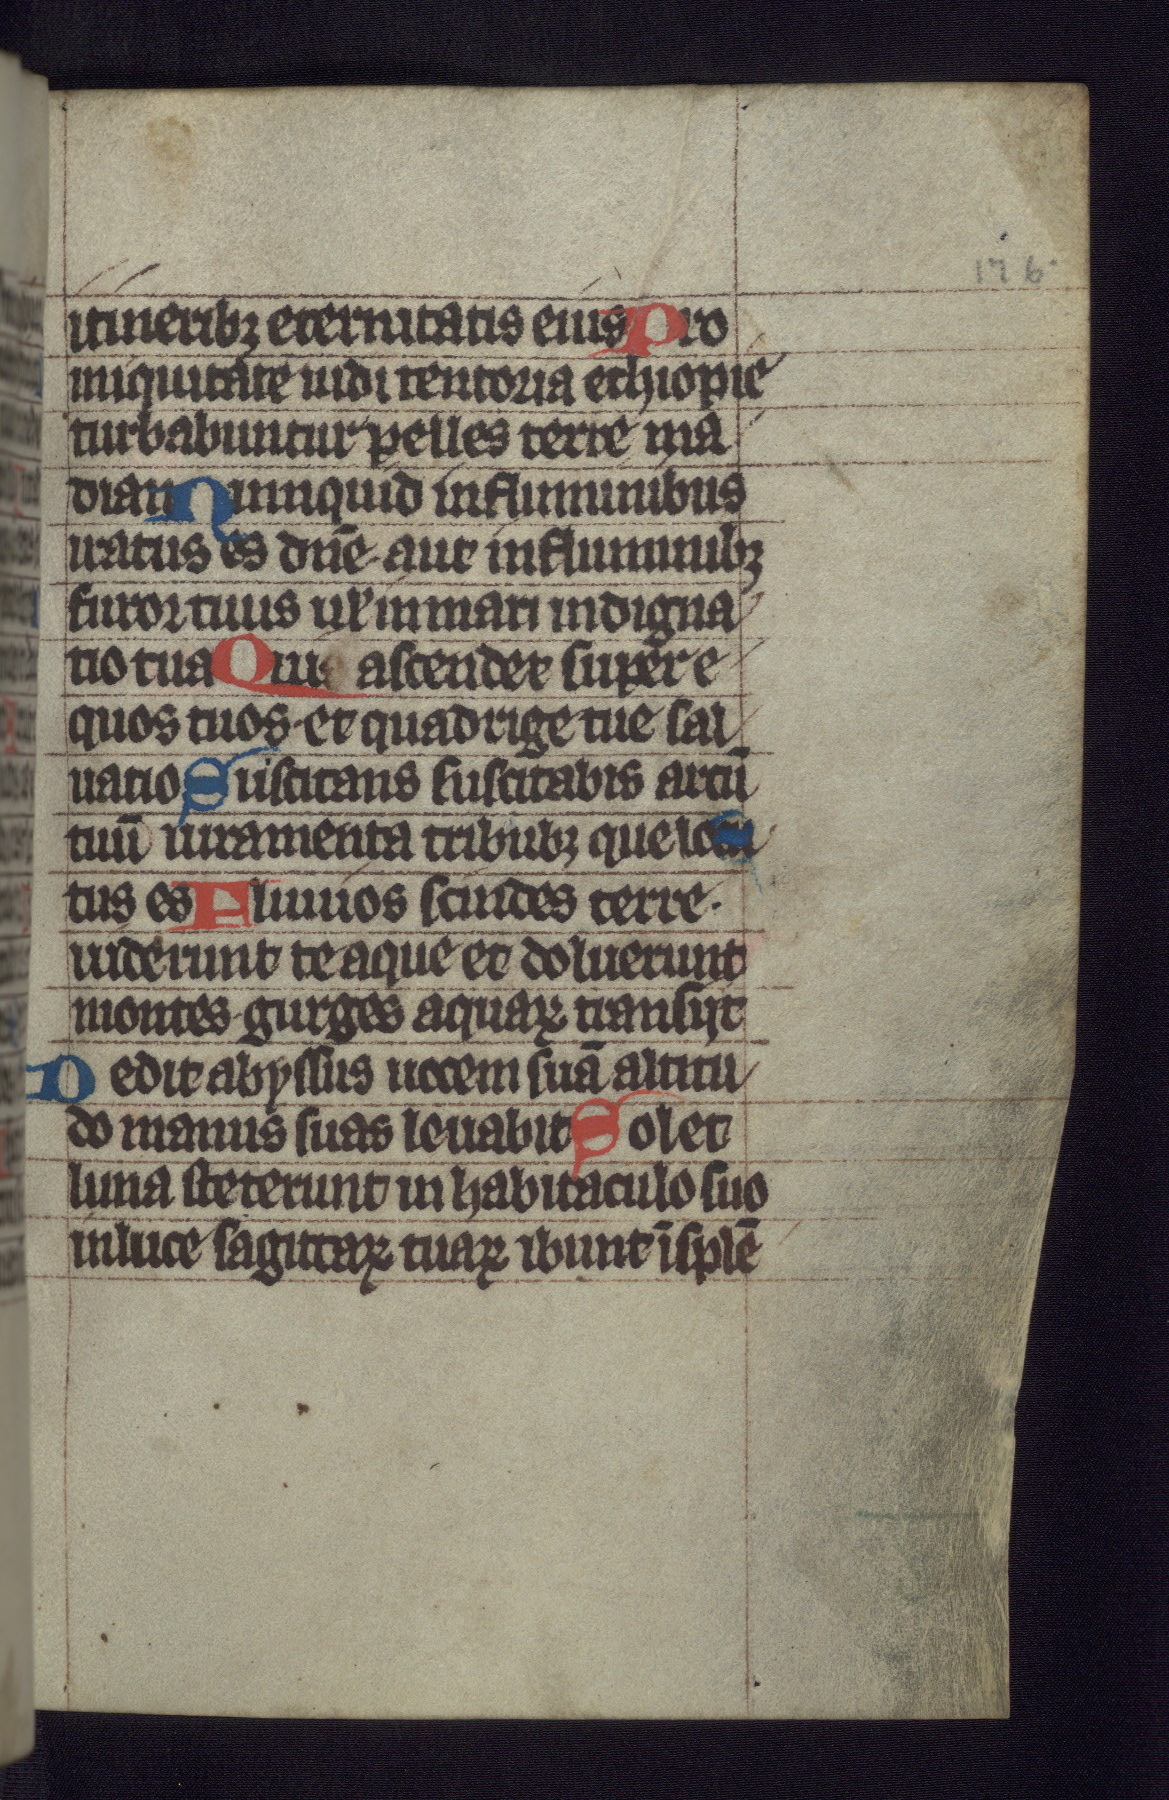 176
itineribꝫ eternitatis eius Pro
iniquitate uidi tentoria ethiopie
turbabuntur pelles terre ma
dian Nunquid in fluminibus
iratus es dn̄e· aut in fluminibꝫ
furor tuus ul̓ in mari indigna
tio tua Qui ascendes super e
quos tuos· et quadrige tue sal
uatio Suscitans suscitabis arcū
tuū iuramenta tribubꝫ que locu
tus es Fluuios scindes terre·
uiderunt te aque et doluerunt
montes· gurges aquaꝝ transijt
Dedit abyssus uocem suā altitu
do manus suas leuabit Sol et
luna steterunt in habitaculo suo
in luce sagittaꝝ tuaꝝ ibunt ī splē